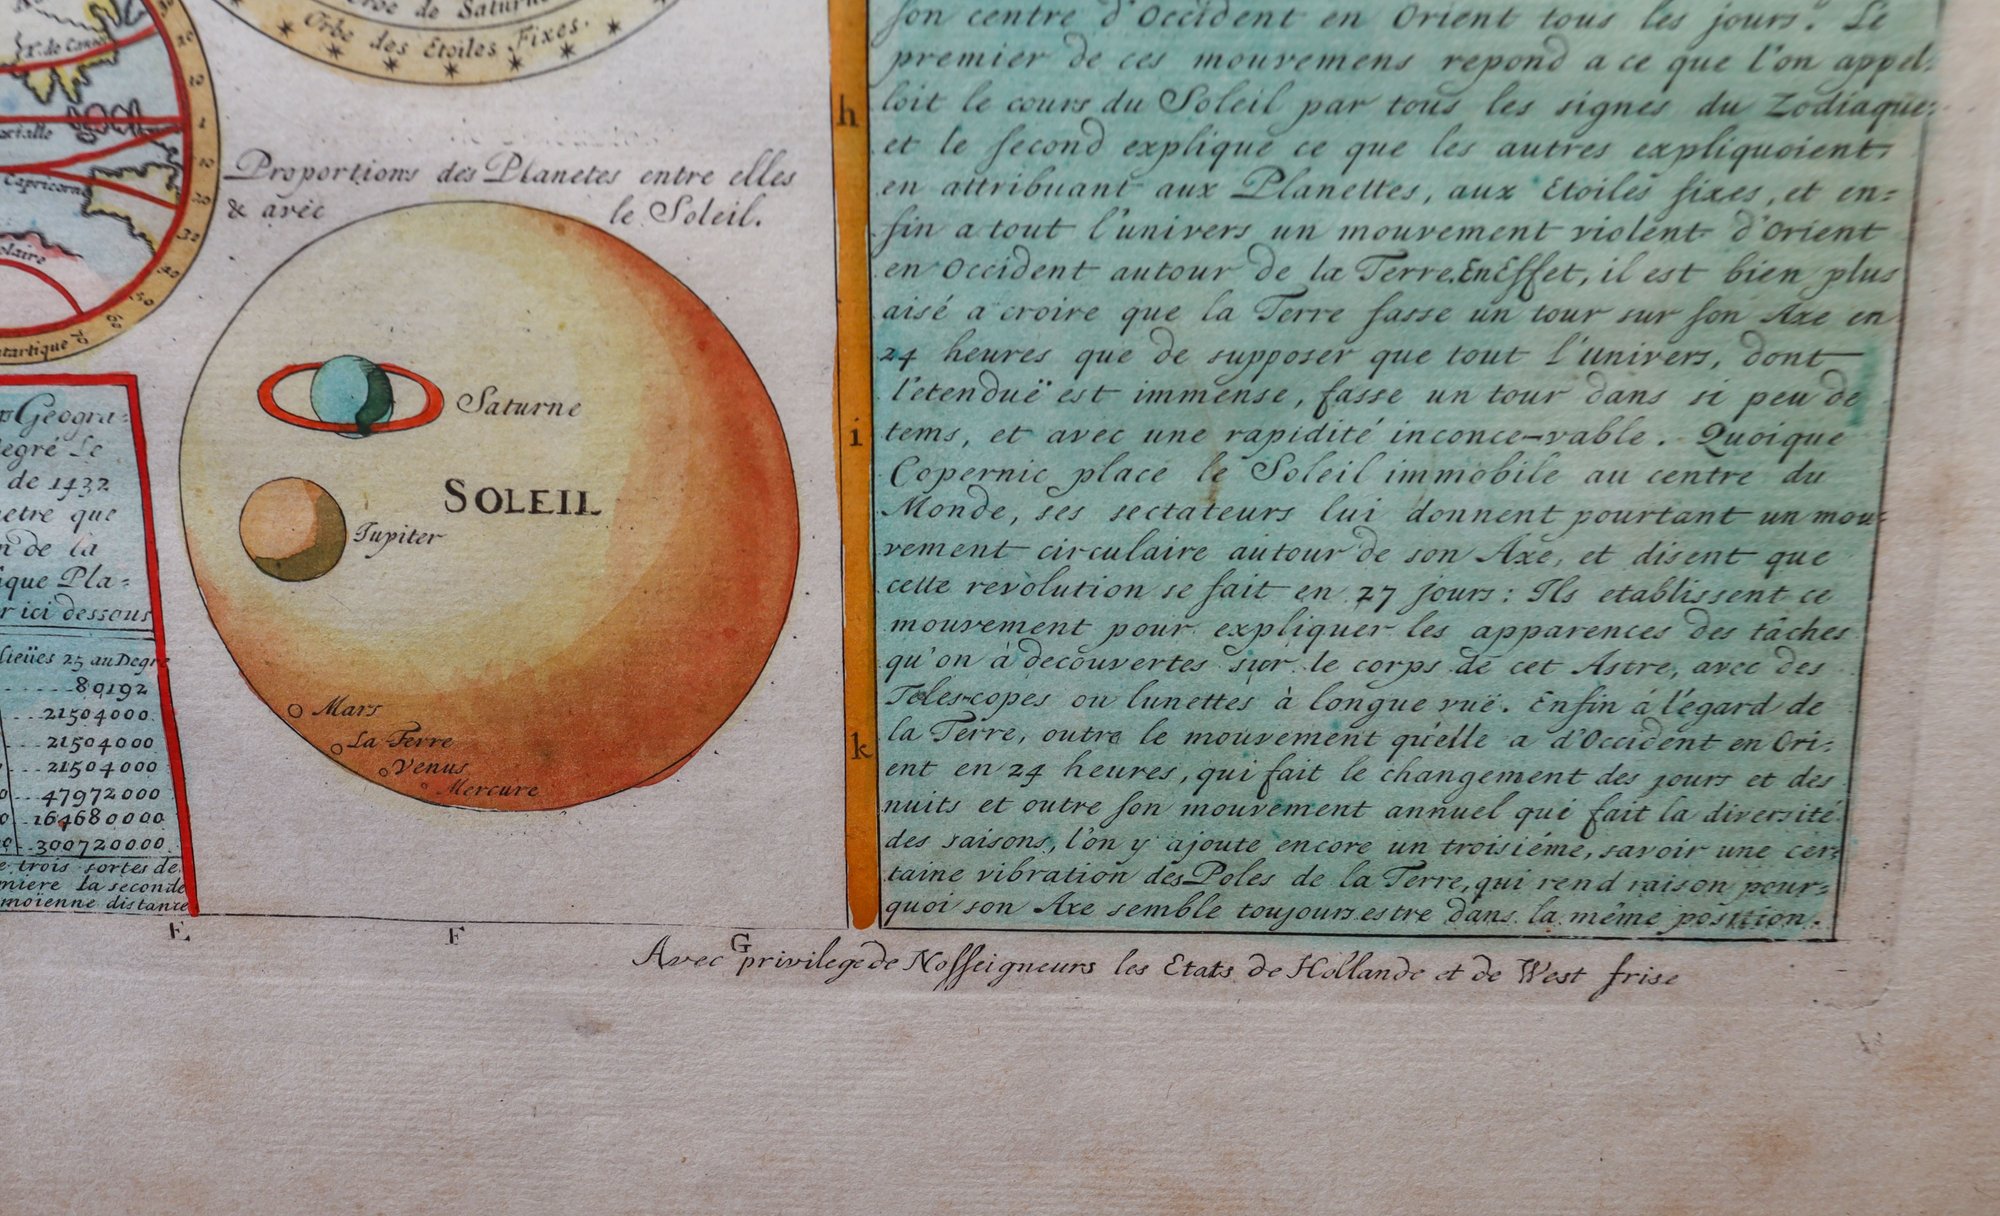 Orbe de Saturne
Orbe des Etoiles Fixes.
T. de Cancer
Capricorne
olaire
ntartique
Proportions des Planetes entre elles
& avec le Soleil.
Saturne
SOLEIL
Jupiter
Mars
La Terre
Venus
Mercure
Geogra-
egré Le
de 1432
etre que
n de la
ique Pla-
r ici dessous
lieües 25 au Degré
80192
21504000
21504000
21504000
47972000
164680000
300720000
e trois sortes de
miere la seconde
moienne distance
E F G
h
i
k
son centre d'Occident en Orient tous les jours. Le
premier de ces mouvemens repond a ce que l'on appel-
loit le cours du Soleil par tous les signes du Zodiaque,
et le second explique ce que les autres expliquoient
en attribuant aux Planettes, aux Etoiles fixes, et en-
fin a tout l'univers un mouvement violent d'Orient
en Occident autour de la Terre. En Effet, il est bien plus
aisé a croire que la Terre fasse un tour sur son Axe en
24 heures que de supposer que tout l'univers, dont
l'etenduë est immense, fasse un tour dans si peu de
tems, et avec une rapidité inconce-vable. Quoique
Copernic place le Soleil immobile au centre du
Monde, ses sectateurs lui donnent pourtant un mou-
vement circulaire autour de son Axe, et disent que
cette revolution se fait en 27 jours: Ils etablissent ce
mouvement pour expliquer les apparences des tâches
qu'on à decouvertes sur le corps de cet Astre, avec des
Telescopes ou lunettes à longue vuë. Enfin á l'égard de
la Terre, outre le mouvement qu'elle a d'Occident en Ori-
ent en 24 heures, qui fait le changement des jours et des
nuits et outre son mouvement annuel qui fait la diversité
des saisons, l'on y ajoute encore un troisiéme, savoir une cer-
taine vibration des Poles de la Terre, qui rend raison pour-
quoi son Axe semble toujours estre dans la même position.
Avec privilege de Nosseigneurs les Etats de Hollande et de West frise